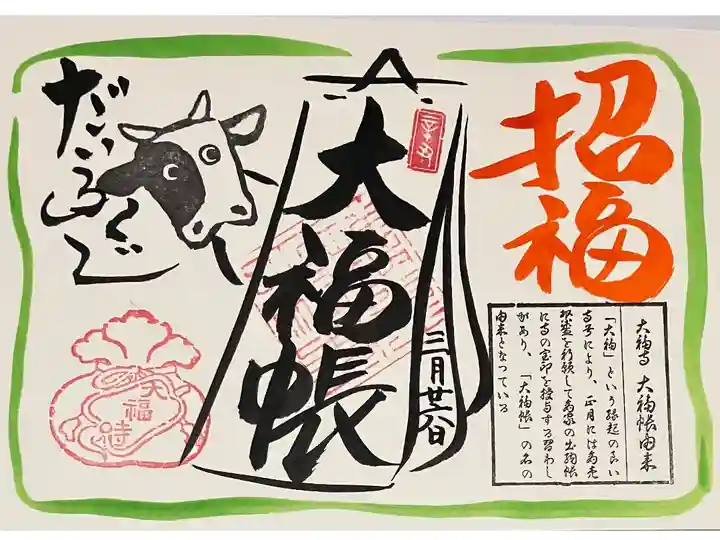 招福
大福寺 大福帳由来
「大福」という縁起の良い
寺号により、正月には商売
繁盛を祈願して商家の出納帳
に寺の宝印を授与する習わし
があり、「大福帳」の名の
由来となっている
大福帳
三月廿八日
だいふくじ
大福寺